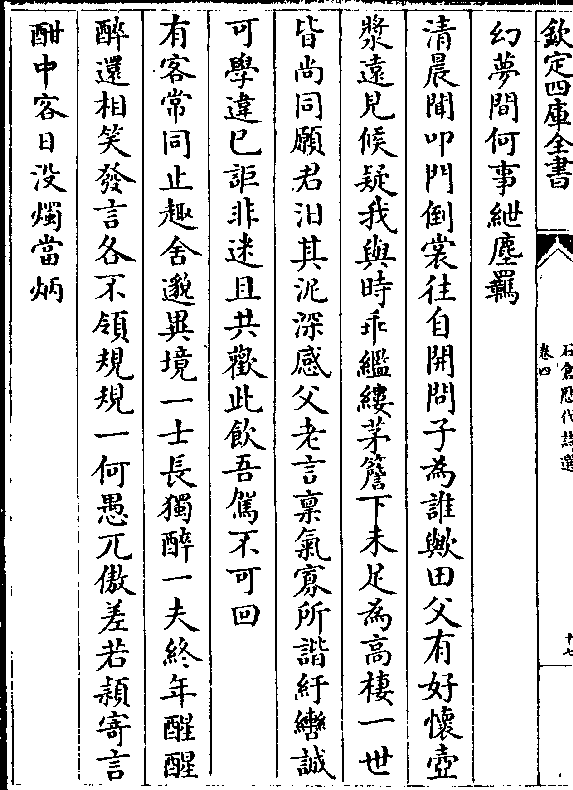 欽定四庫全書
幻夢間何事紲塵羈
清晨聞叩門倒裳往自開問子為誰歟田父有好懷壺
漿遠見候疑我與時乖繿縷茅簷下未足為高棲一世
皆尚同願君汨其泥深感父老言稟氣寡所諧紆轡誠
可學違已詎非迷且共歡此飲吾駕不可回
有客常同止趣舍邈異境一士長獨醉一夫終年醒醒
醉還相笑發言各不領規規一何愚兀傲差若穎寄言
酣中客日沒燭當炳
石倉歷代詩選
卷四
十七